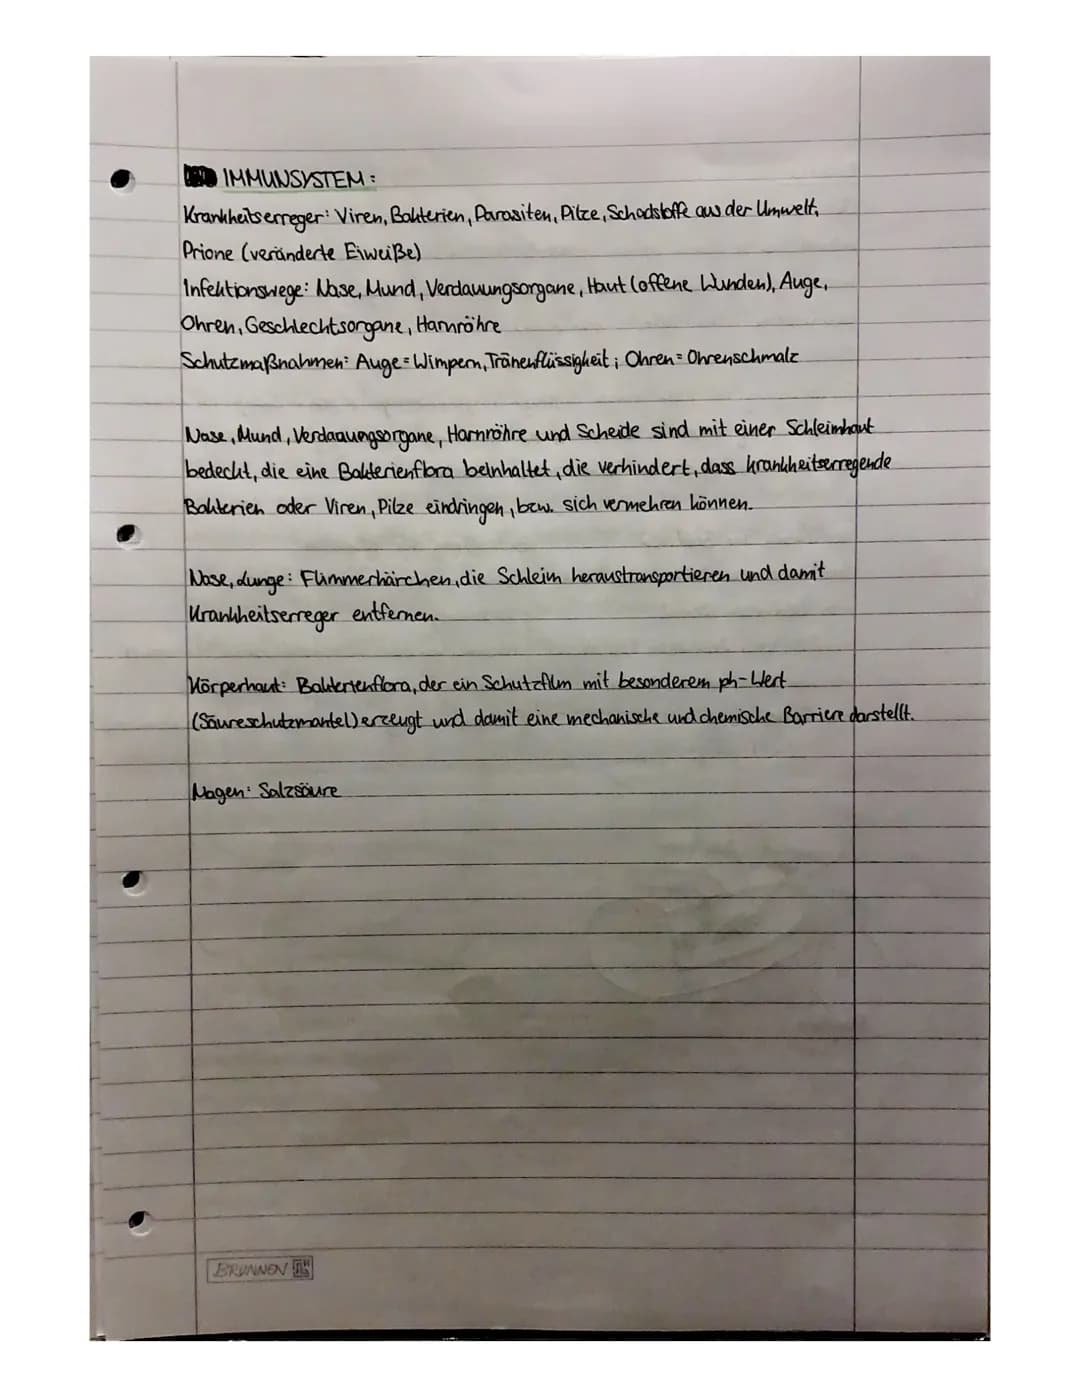 IMMUNSYSTEM:
Krankheitserreger: Viren, Bakterien, Parasiten, Pilze, Schadstoffe aus der Umwelt,
Prione (veränderte Eiweiße)
Infektionswege: Nase, Mund, Verdauungsorgane, Haut (offene Wunden), Auge,
Ohren, Geschlechtsorgane, Harnröhre
Schutzmaßnahmen: Auge = Wimpern, Tränenflüssigkeit; Ohren = Ohrenschmalz
Nase, Mund, Verdauungsorgane, Harnröhre und Scheide sind mit einer Schleimhaut
bedeckt, die eine Bakterienflora beinhaltet, die verhindert, dass krankheitserregende
Bakterien oder Viren, Pilze eindringen, bzw. sich vermehren können.
Nase, Lunge: Flimmerhärchen, die Schleim heraustransportieren und damit
Krankheitserreger entfernen.
Körperhaut: Bakterienflora, der ein Schutzfilm mit besonderem ph-Wert
(Säureschutzmantel) erzeugt und damit eine mechanische und chemische Barriere darstellt.
Magen: Salzsäure
BRUNNEN